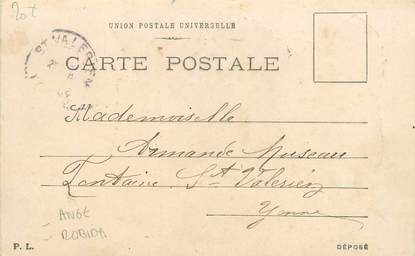 20t
UNION POSTALE UNIVERSELLE
CARTE POSTALE
ST VALERIEN
Mademoiselle
Armande Museau
Fontaine St Valérien
Yonne
ANGE
ROBIDA
P. L.
DÉPOSÉ